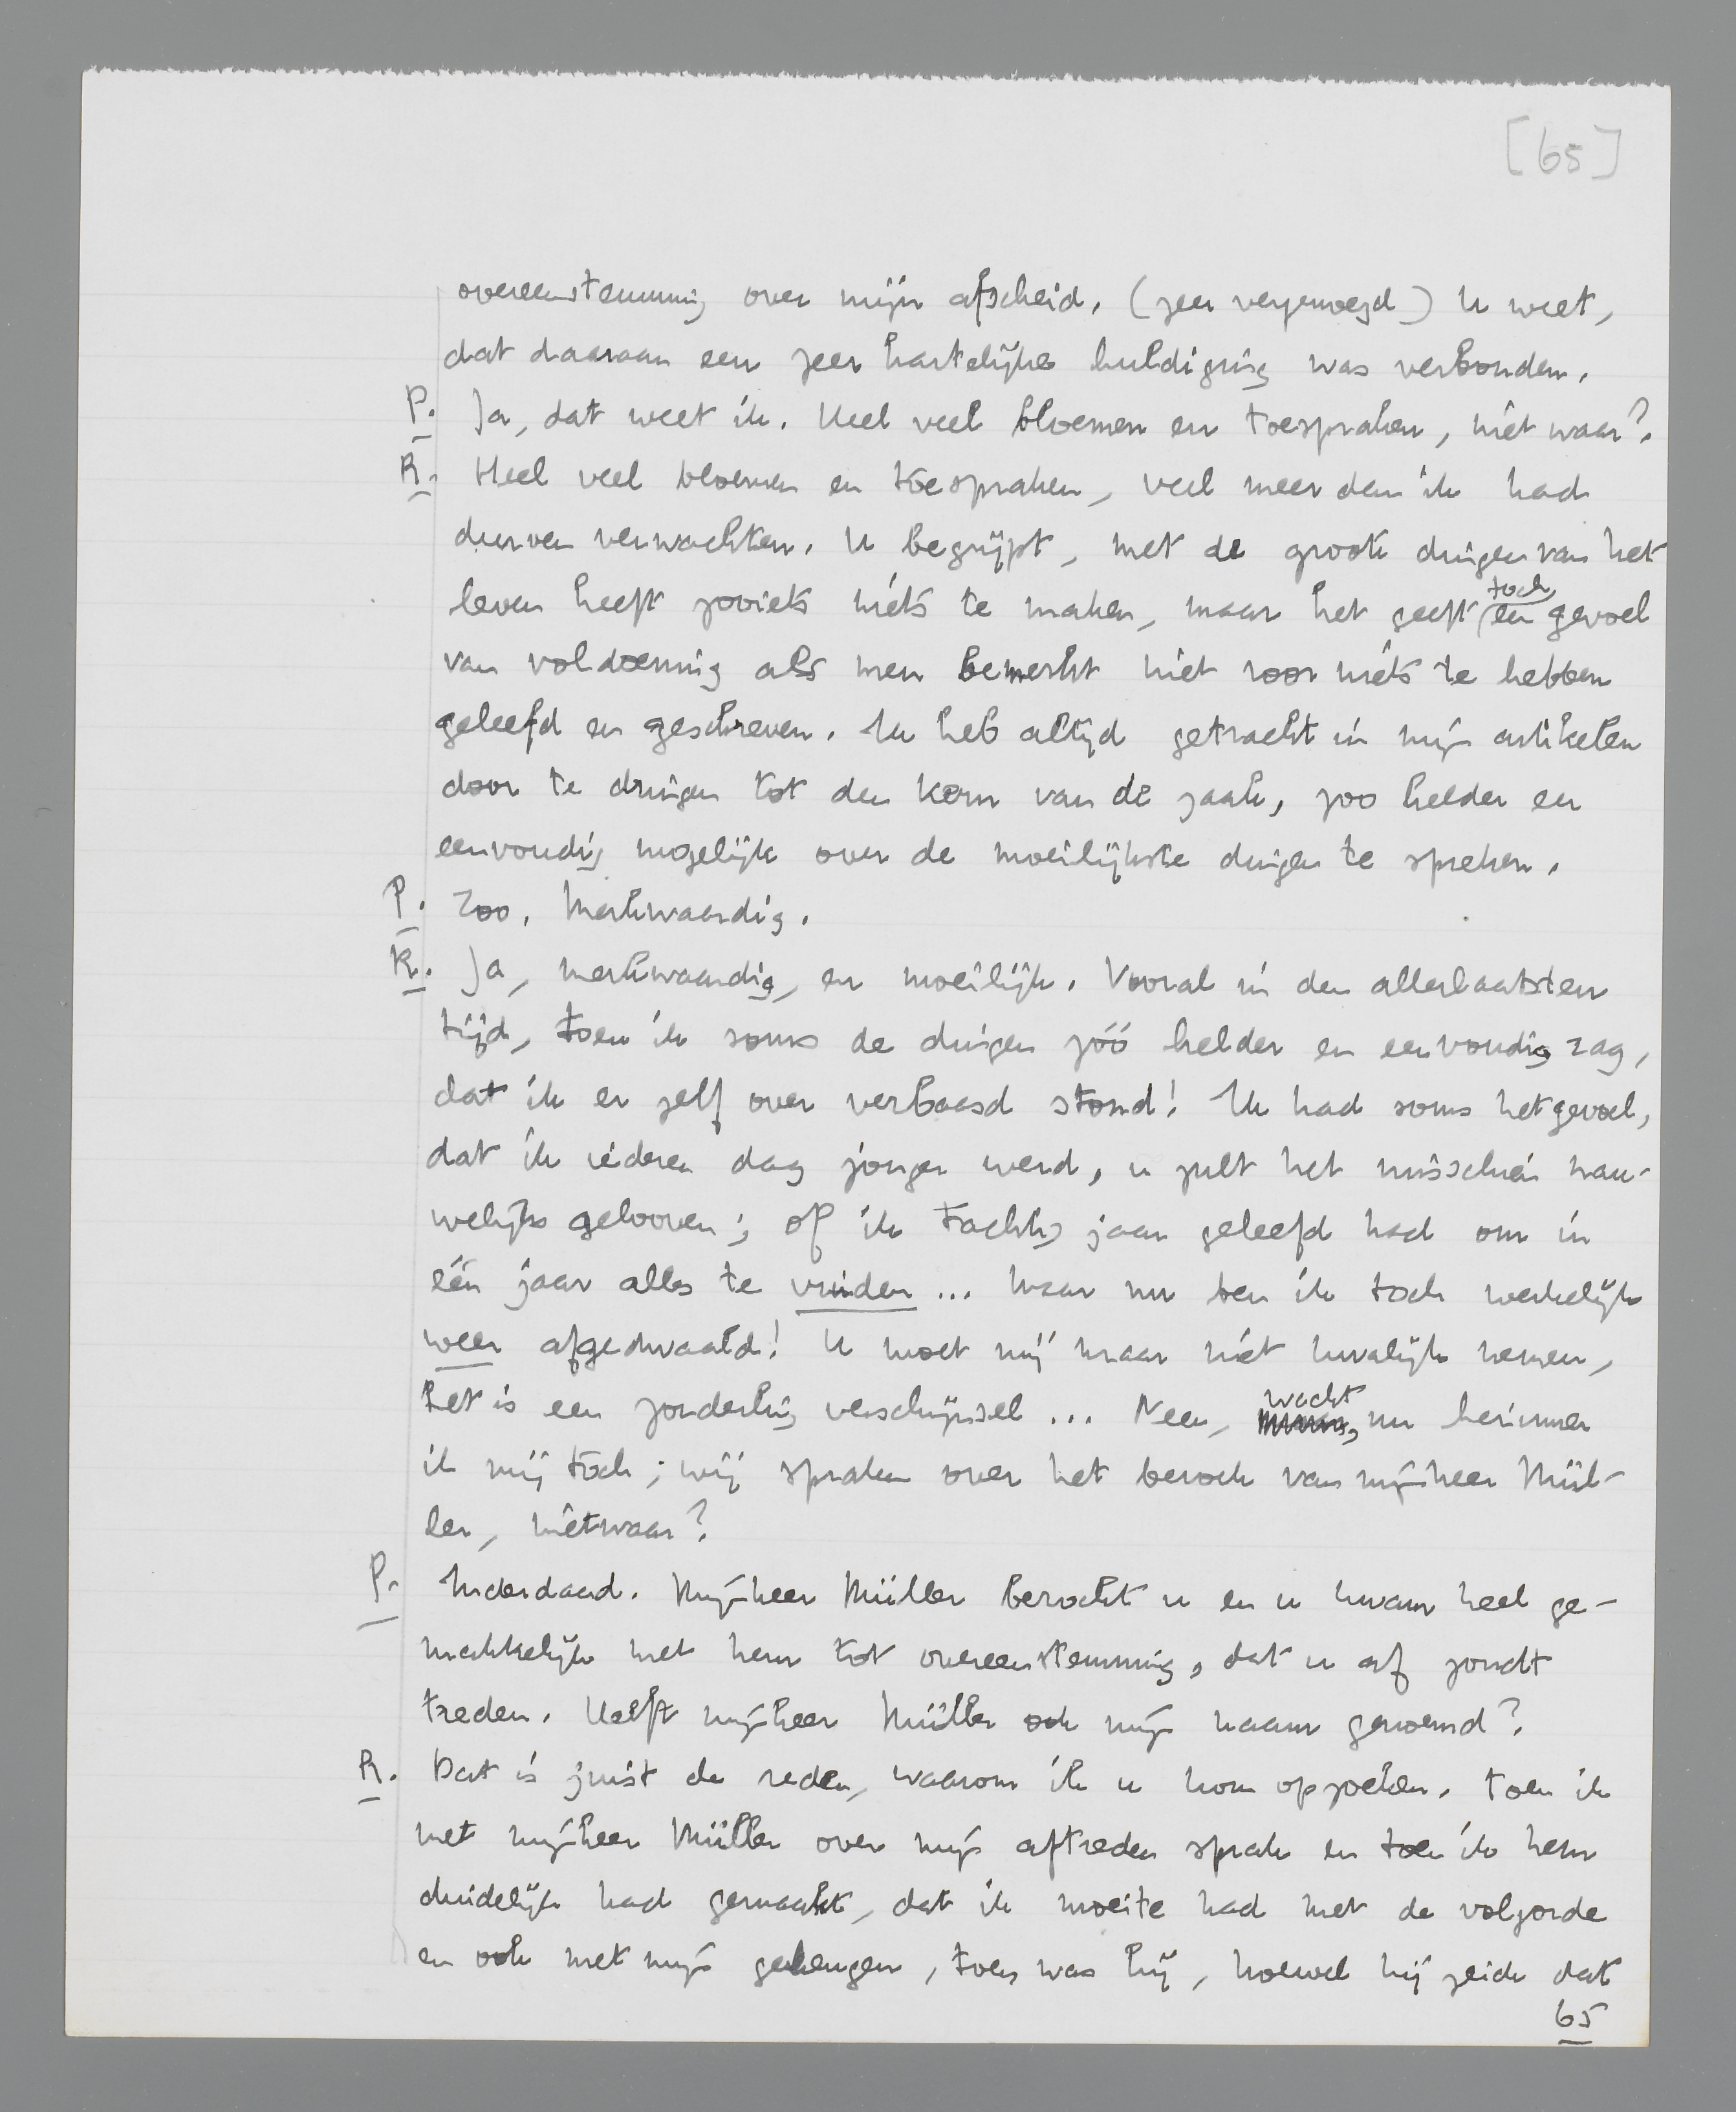 [65]
overeenstemming over mijn afscheid. (zeer vergenoegd) U weet,
dat daaraan een zeer hartelijke huldiging was verbonden.
P. Ja, dat weet ik. Heel veel bloemen en toespraken, niet waar?
R. Heel veel bloemen en toespraken, veel meer dan ik had
durven verwachten. U begrijpt, met de groote dingen van het
leven heeft zooiets niets te maken, maar het geeft toch een gevoel
van voldoening als men bemerkt niet voor niets te hebben
geleefd en geschreven. Ik heb altijd getracht in mijn artikelen
door te dringen tot den kern van de zaak, zoo helder en
eenvoudig mogelijk over de moeilijkste dingen te spreken.
P. Zoo. Merkwaardig.
R. Ja, merkwaardig, en moeilijk. Vooral in den allerlaatsten
tijd, toen ik soms de dingen zóó helder en eenvoudig zag,
dat ik er zelf over verbaasd stond! Ik had soms het gevoel,
dat ik iederen dag jonger werd, u zult het misschien nau-
welijks gelooven; of ik tachtig jaar geleefd had om in
één jaar alles te vinden ... Maar nu ben ik toch werkelijk
weer afgedwaald! U moet mij maar niet kwalijk nemen,
het is een zonderling verschijnsel ... Neen, wacht, nu herinner
ik mij toch; wij spraken over het bezoek van mijnheer Mül-
ler, nietwaar?
P. Inderdaad. Mijnheer Müller bezocht u en u kwam heel ge-
makkelijk met hem tot overeenstemming, dat u af zoudt
treden. Heeft mijnheer Müller ook mijn naam genoemd?
R. Dat is juist de reden, waarom ik u kom opzoeken. Toen ik
met mijnheer Müller over mijn aftreden sprak en toen ik hem
duidelijk had gemaakt, dat ik moeite had met de volgorde
en ook met mijn geheugen, toen was hij, hoewel hij zeide dat
65